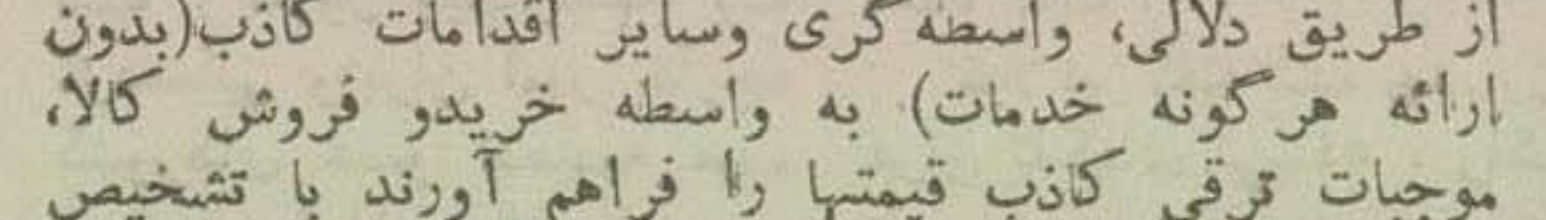 از طریق دلالی، واسطه گری وسایر اقدامات کاذب(بدون
ارائه هرگونه خدمات) به واسطه خریدو فروش کالا،
موجبات ترقی کاذب قیمتها را فراهم آورند با تشخیص